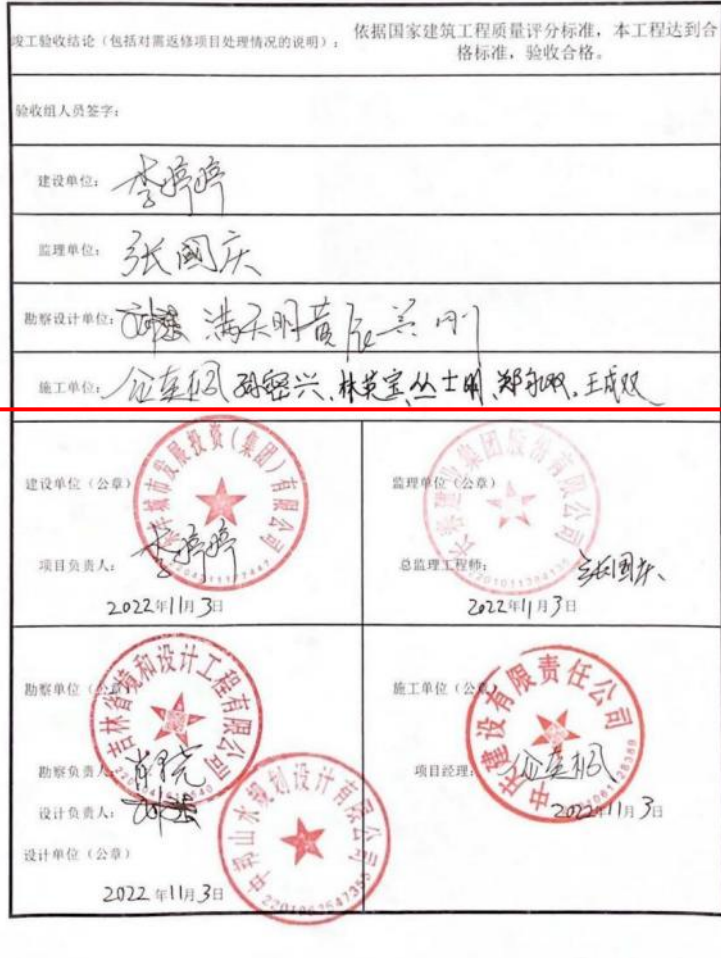 竣工验收结论（包括对需返修项目处理情况的说明）：
依据国家建筑工程质量评分标准，本工程达到合
格标准，验收合格。
验收组人员签字：
建设单位：李婷婷
监理单位：张国庆
勘察设计单位：满天明
施工单位：林英宝 丛士明、郑永双、王成双
建设单位（公章）
城市发展投资（集团）有限公司
项目负责人：李婷婷
2022年11月3日
监理单位（公章）
建业集团股份有限公司
总监理工程师：张国庆
2022年11月3日
勘察单位（公章）
吉林省境和设计工程有限公司
勘察负责人：
设计负责人：
设计单位（公章）
山水规划设计有限公司
2022年11月3日
施工单位（公章）
中庆建设有限责任公司
项目经理：
2022年11月3日